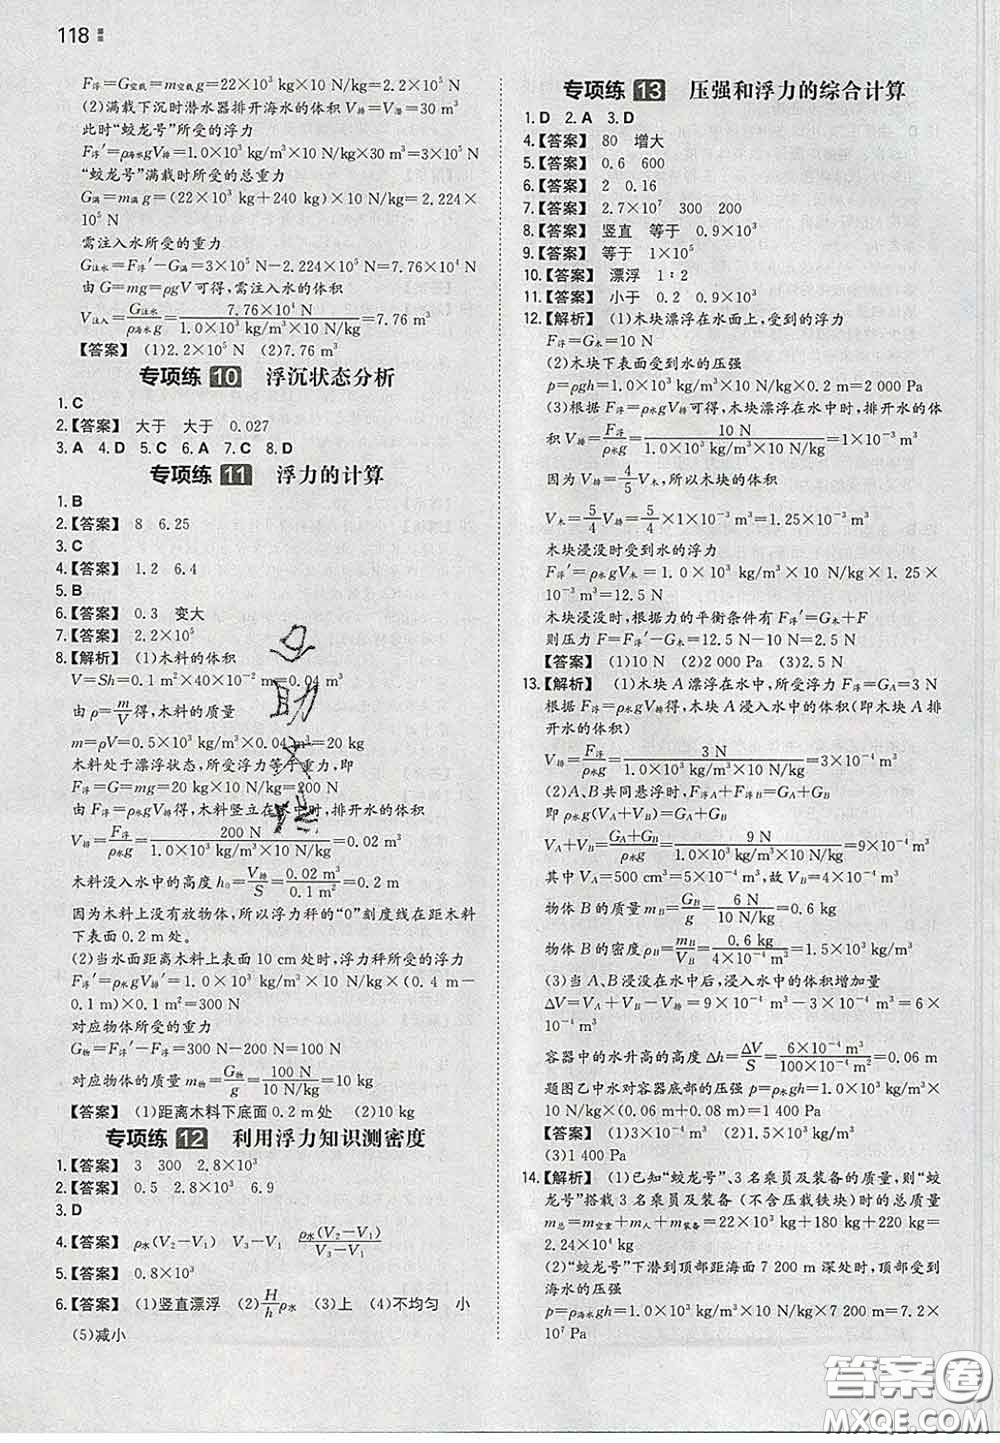 118
F浮=G空载=m空载g=22×10³ kg×10 N/kg=2.2×10⁵ N
(2)满载下沉时潜水器排开海水的体积 V排=V=30 m³
此时“蛟龙号”所受的浮力
F浮′=ρ海水gV排=1.0×10³ kg/m³×10 N/kg×30 m³=3×10⁵ N
“蛟龙号”满载时所受的总重力
G满=m满g=(22×10³ kg+240 kg)×10 N/kg=2.224×
10⁵ N
需注入水所受的重力
G注水=F浮′-G满=3×10⁵ N-2.224×10⁵ N=7.76×10⁴ N
由 G=mg=ρgV 可得,需注入水的体积
V注入=G注水/ρ海水g=7.76×10⁴ N/1.0×10³ kg/m³×10 N/kg=7.76 m³
【答案】 (1)2.2×10⁵ N (2)7.76 m³
专项练 10 浮沉状态分析
1. C
2.【答案】 大于 大于 0.027
3. A 4. D 5. C 6. A 7. C 8. D
专项练 11 浮力的计算
1. B
2.【答案】 8 6.25
3. C
4.【答案】 1.2 6.4
5. B
6.【答案】 0.3 变大
7.【答案】 2.2×10⁵
8.【解析】 (1)木料的体积
V=Sh=0.1 m²×40×10⁻² m=0.04 m³
由 ρ=m/V得,木料的质量
m=ρV=0.5×10³ kg/m³×0.04 m³=20 kg
木料处于漂浮状态,所受浮力等于重力,即
F浮=G=mg=20 kg×10 N/kg=200 N
由 F浮=ρ水gV排得,木料竖立在水中时,排开水的体积
V排=F浮/ρ水g=200 N/1.0×10³ kg/m³×10 N/kg=0.02 m³
木料没入水中的高度 h₀=V排/S=0.02 m³/0.1 m²=0.2 m
因为木料上没有放物体,所以浮力秤的“0”刻度线在距木料
下表面 0.2 m 处。
(2)当水面距离木料上表面 10 cm 处时,浮力秤所受的浮力
F浮′=ρ水gV排′=1.0×10³ kg/m³×10 N/kg×(0.4 m-
0.1 m)×0.1 m²=300 N
对应物体所受的重力
G物=F浮′-F浮=300 N-200 N=100 N
对应物体的质量 m物=G物/g=100 N/10 N/kg=10 kg
【答案】 (1)距离木料下底面 0.2 m 处 (2)10 kg
专项练 12 利用浮力知识测密度
1.【答案】 3 300 2.8×10³
2.【答案】 0.5 2.8×10³ 6.9
3. D
4.【答案】 ρ水(V₂-V₁) V₃-V₁ ρ水(V₂-V₁)/V₃-V₁
5.【答案】 0.8×10³
6.【答案】 (1)竖直漂浮 (2)H/hρ水 (3)上 (4)不均匀 小
(5)减小
专项练 13 压强和浮力的综合计算
1. D 2. A 3. D
4.【答案】 80 增大
5.【答案】 0.6 600
6.【答案】 2 0.16
7.【答案】 2.7×10⁷ 300 200
8.【答案】 竖直 等于 0.9×10³
9.【答案】 等于 1×10⁵
10.【答案】 漂浮 1∶2
11.【答案】 小于 0.2 0.9×10³
12.【解析】 (1)木块漂浮在水面上,受到的浮力
F浮=G木=10 N
(2)木块下表面受到水的压强
p=ρgh=1.0×10³ kg/m³×10 N/kg×0.2 m=2 000 Pa
(3)根据 F浮=ρ水gV排可得,木块漂浮在水中时,排开水的体
积 V排=F浮/ρ水g=10 N/1.0×10³ kg/m³×10 N/kg=1×10⁻³ m³
因为 V排=4/5V木,所以木块的体积
V木=5/4V排=5/4×1×10⁻³ m³=1.25×10⁻³ m³
木块浸没时受到水的浮力
F浮′=ρ水gV木=1.0×10³ kg/m³×10 N/kg×1.25×
10⁻³ m³=12.5 N
木块浸没时,根据力的平衡条件有 F浮′=G木+F
则压力 F=F浮′-G木=12.5 N-10 N=2.5 N
【答案】 (1)10 N (2)2 000 Pa (3)2.5 N
13.【解析】 (1)木块 A 漂浮在水中,所受浮力 F浮=GA=3 N
根据 F浮=ρ水gV排得,木块 A 浸入水中的体积(即木块 A 排
开水的体积)
V排=F浮/ρ水g=3 N/1.0×10³ kg/m³×10 N/kg=3×10⁻⁴ m³
(2)A、B 共同悬浮时,F浮A+F浮B=GA+GB
即 ρ水g(VA+VB)=GA+GB
VA+VB=GA+GB/ρ水g=9 N/1.0×10³ kg/m³×10 N/kg=9×10⁻⁴ m³
其中 VA=500 cm³=5×10⁻⁴ m³,故 VB=4×10⁻⁴ m³
物体 B 的质量 mB=GB/g=6 N/10 N/kg=0.6 kg
物体 B 的密度 ρB=mB/VB=0.6 kg/4×10⁻⁴ m³=1.5×10³ kg/m³
(3)当 A、B 浸没在水中后,浸入水中的体积增加量
ΔV=VA+VB-V排=9×10⁻⁴ m³-3×10⁻⁴ m³=6×
10⁻⁴ m³
容器中的水升高的高度 Δh=ΔV/S=6×10⁻⁴ m³/0.01 m²=0.06 m
题图乙中水对容器底部的压强 p=ρ水gh=1.0×10³ kg/m³×
10 N/kg×(0.06 m+0.08 m)=1 400 Pa
【答案】 (1)3×10⁻⁴ m³ (2)1.5×10³ kg/m³
(3)1 400 Pa
14.【解析】 (1)已知“蛟龙号”、3 名乘员及装备的质量,则“蛟
龙号”搭载 3 名乘员及装备(不含压载铁块)时的总质量
m总=m空重+m人+m装备=22×10³ kg+180 kg+220 kg=
2.24×10⁴ kg
(2)“蛟龙号”下潜到顶部距海面 7 200 m 深处时,顶部受到
海水的压强
p=ρ海水gh=1.0×10³ kg/m³×10 N/kg×7 200 m=7.2×
10⁷ Pa
答案圈
MXQE.COM